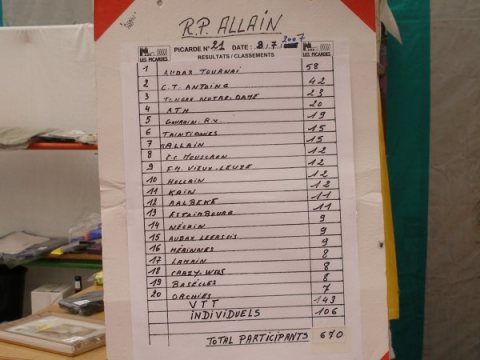 R.P. ALLAIN
PICARDE N° 21 DATE : 8/7/2007
LES PICARDES
RESULTATS / CLASSEMENTS
LES PICARDES
1 AUDAX TOURNAI 58
2 C.T. ANTOING 42
3 23
4 A.T.H 20
5 19
6 TAINTIGNES 15
7 ALLAIN 15
8 P.C MOUSCRON 12
9 VIEUX-LEUZE 12
10 HOLLAIN 12
11 KAIN 12
12 AALBEKE 11
13 ESTAIMBOURG 11
14 NÉCHIN 9
15 AUDAX LEERSOIS 9
16 HÉRINNES 9
17 LAMAIN 8
18 CRAZY-WEBS 8
19 BASÈCLES 8
20 ORCHIES 7
VTT 143
INDIVIDUELS 106
TOTAL PARTICIPANTS 670